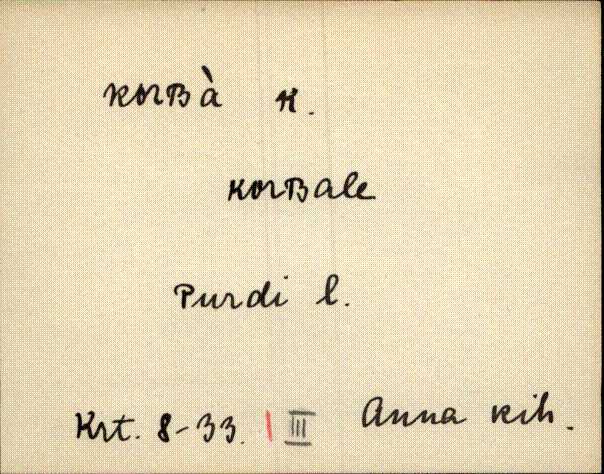 KorBà K.
KorBale
Purdi l.
Krt. 8-33. | III Anna kih.